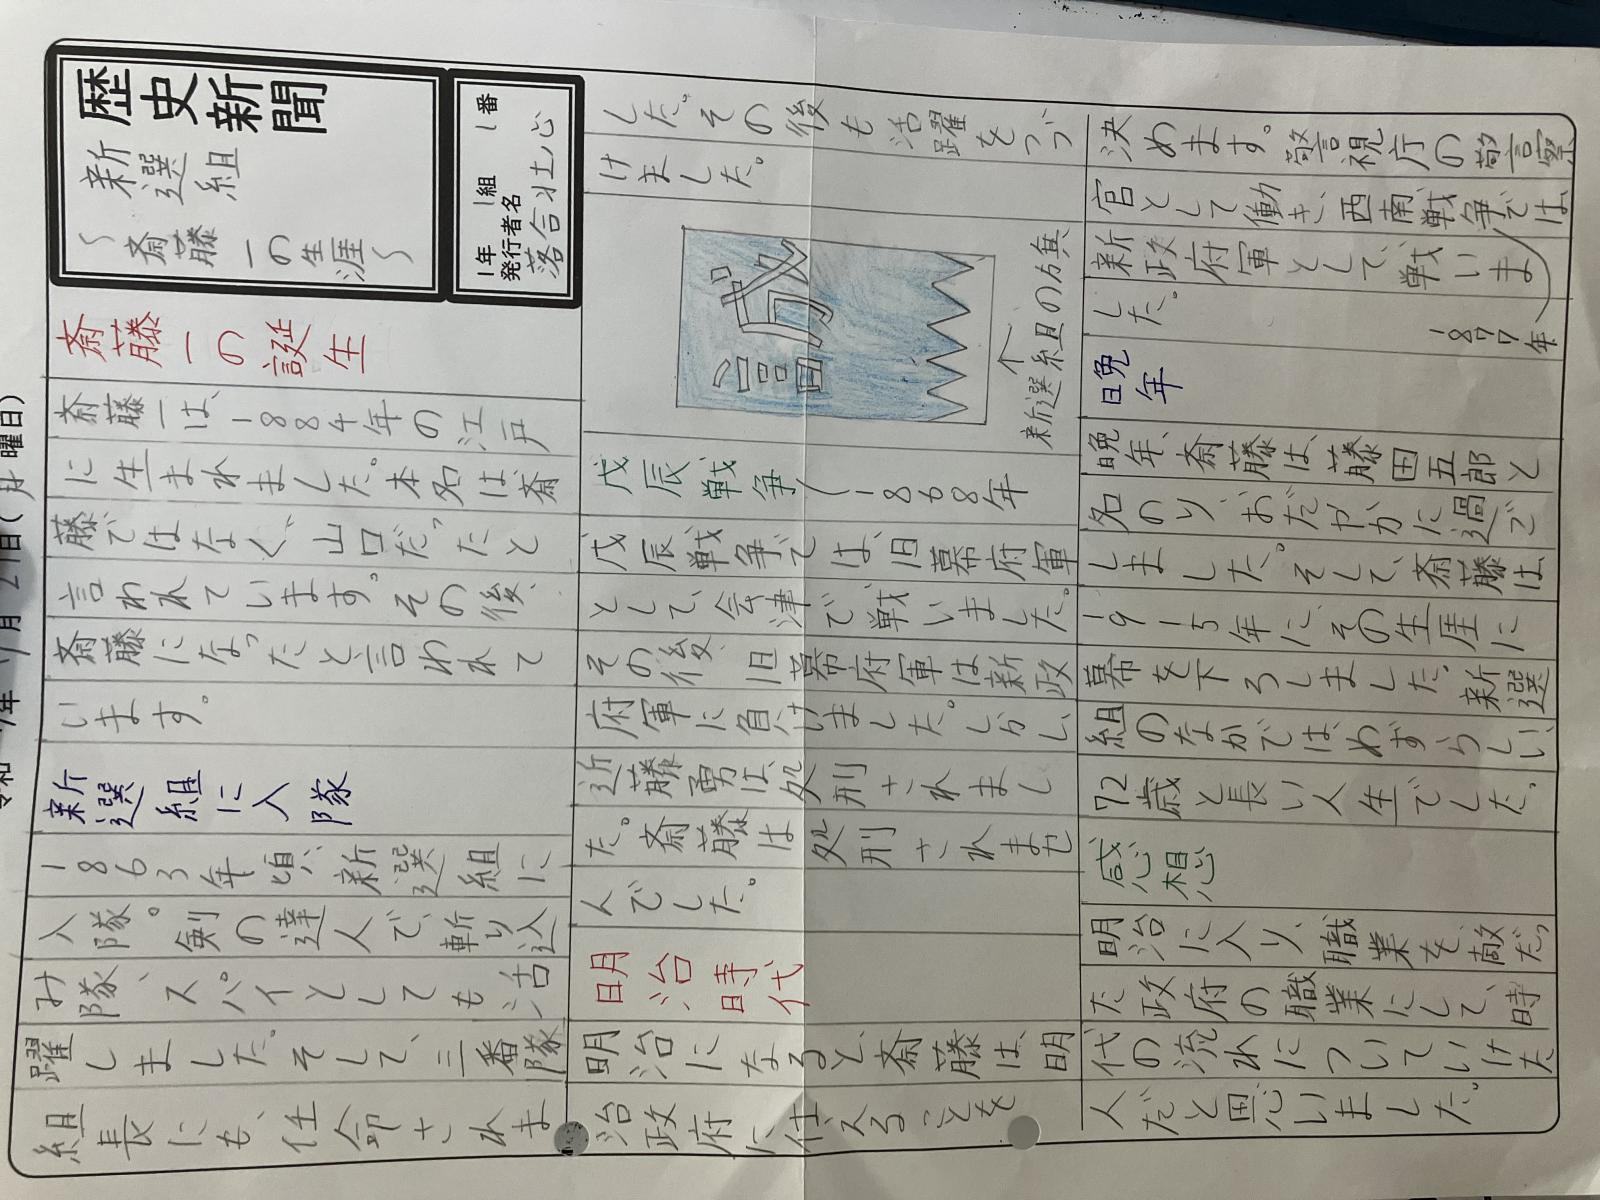 歴史新聞
新選組
〜斎藤一の生涯〜
1年 1組 1番
発行者名
落合壮心
斎藤一の誕生
斎藤一は、1884年の江戸
に生まれました。本名は斎
藤ではなく、山口だったと
言われています。その後、
斎藤になったと言われて
います。
新選組に入隊
1863年頃、新選組に
入隊。剣の達人で、斬り込
み隊、スパイとしても活
躍しました。そして、三番隊
組長にも、任命されま
した。その後も活躍をつづ
けました。
誠
↑
新選組の力旗
戊辰戦争(1868年
戊辰戦争では、旧幕府軍
として、会津で戦いました。
その後、旧幕府軍は新政
府軍に負けました。しかし、
近藤勇は、処刑されまし
た。斎藤は処刑されませ
んでした。
明治時代
明治になると、斎藤は、明
治政府に仕えることを
決めます。警視庁の警察
官として働き、西南戦争では、
新政府軍として、戦いま
した。
1877年
晩年
晩年、斎藤は、藤田五郎と
名のり、おだやかに過ご
しました。そして、斎藤は、
1915年に、その生涯に
幕を下ろしました。新選
組のなかでは、めずらしい、
72歳と長い人生でした。
感想
明治に入り、職業を、敵だっ
た政府の職業にして、時
代の流れについていけた
人だと思いました。